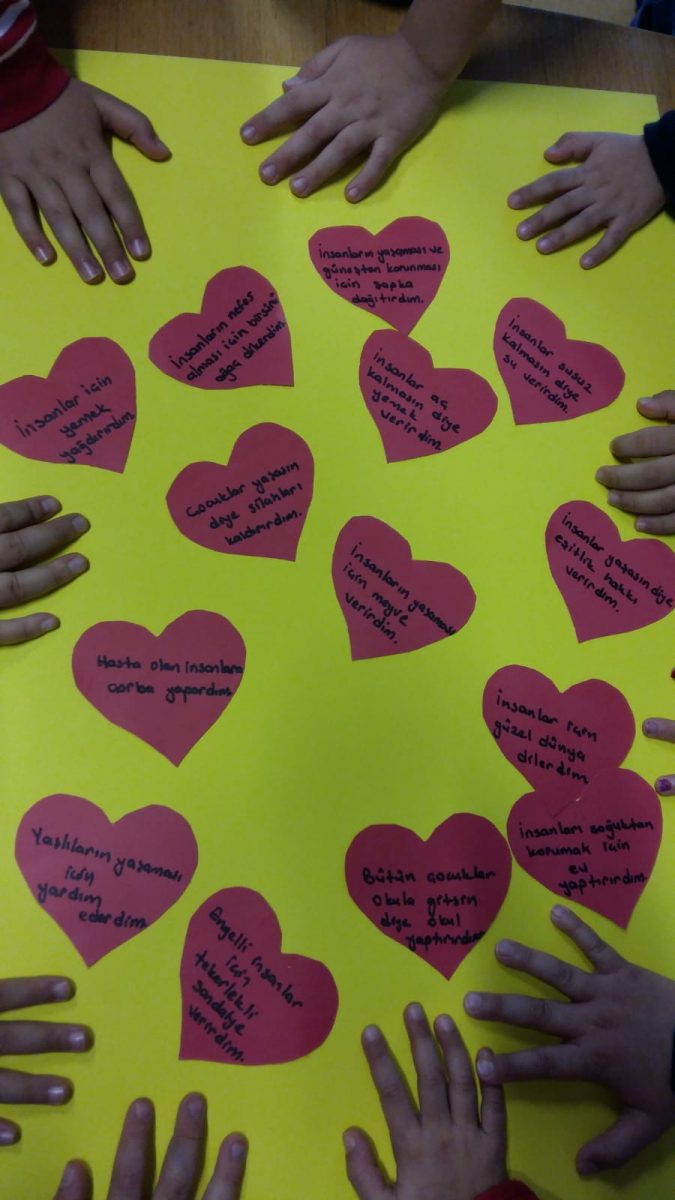 insanların yaşaması ve
güneşten korunması
için şapka
dağıtırdım.
insanların nefes
alması için birsürü
ağaç dikerdim.
insanlar susuz
kalmasın diye
su verirdim.
insanlar için
yemek
yağdırırdım.
insanlar aç
kalmasın diye
yemek
verirdim.
Çocuklar yaşasın
diye silahları
kaldırırdım.
insanların yaşaması
için meyve
verirdim.
insanlar yaşasın diye
eşitlik hakkı
verirdim.
Hasta olan insanlara
çorba yapardım.
insanlar için
güzel dünya
dilerdim
insanları soğuktan
korumak için
ev
yaptırırdım.
Yaşlıların yaşaması
için
yardım
ederdim.
Bütün çocuklar
okula gitsin
diye okul
yaptırırdım
Engelli insanlar
için
tekerlekli
sandalye
verirdim.